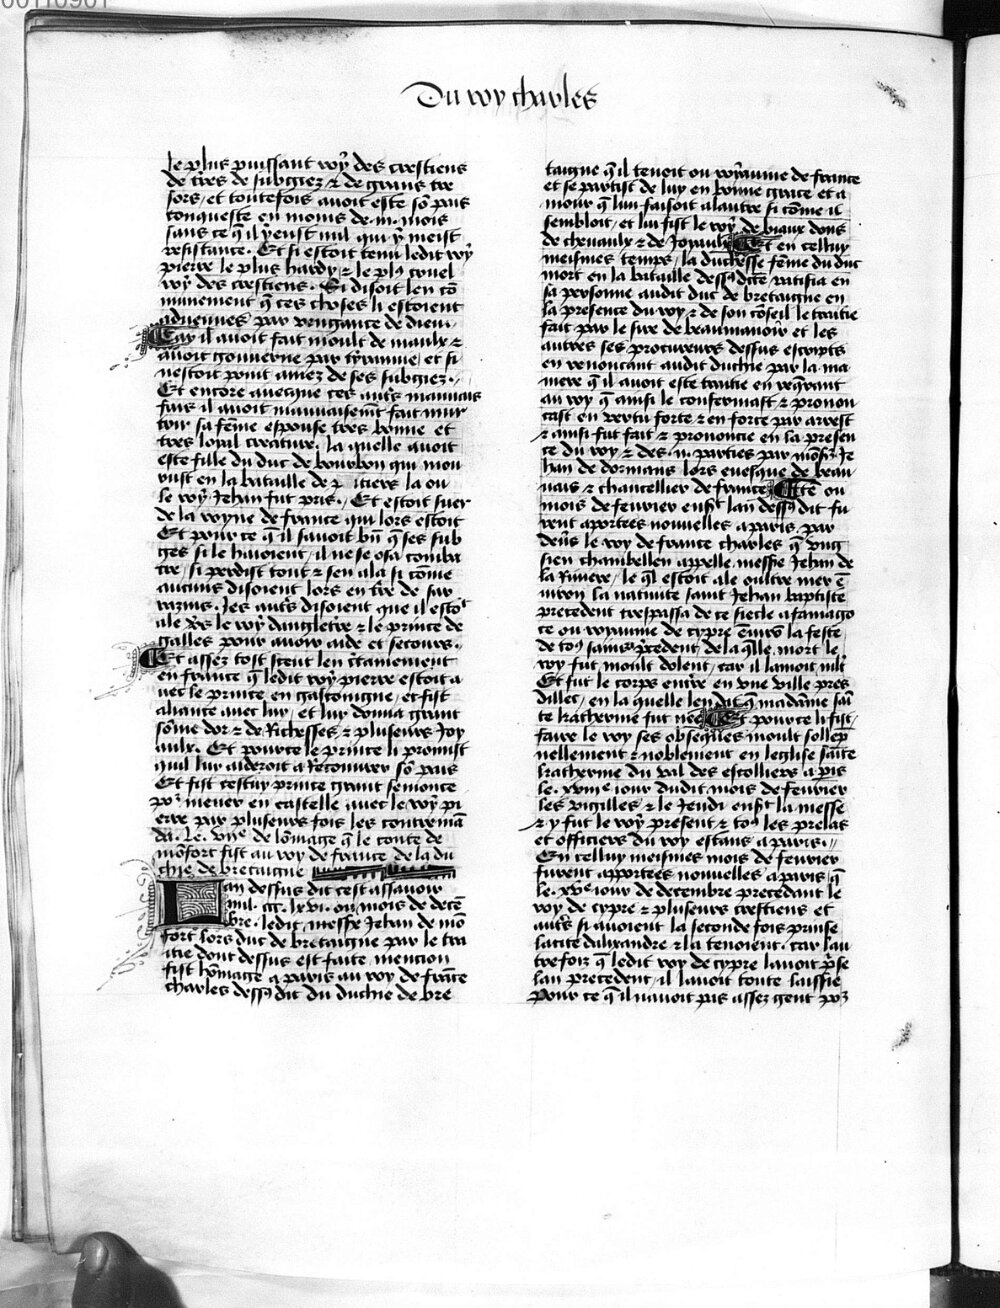 Du roy charles
le plus puissant roy des crestiens
de tres de subgiez ⁊ de grans tre
sors / et toutefois auoit este sō pais
conqueste en moins de .iii. mois
sans ce q̄ il y eust nul qui y meist
resistance . Et si estoit tenu ledit roy
pierre le plus hardy ⁊ le plꝰ cruel
roy des crestiens . Si disoit len cō
munement q̄ ces choses li estoient
aduenues par vengance de dieu .
Car il auoit fait moult de maulx ⁊
auoit gouuerne par tyrannie et si
nestoit point amez de ses subgiez .
Et encore auecque ces autꝭs mauuais
fais il auoit mauuaisemt̄ fait mur
trir sa fēme espouse tres bonne et
tres loyal creature . la quelle auoit
este fille du duc de bourbon qui mou
rust en la bataille de p itiers la ou
le roy Jehan fut pris . Et estoit suer
de la royne de france qui lors estoit
Et pource q̄ il sauoit bn̄ q̄ ses sub
ges si le hauoient / il ne se osa comba
tre / si perdist tout ⁊ sen ala si cōme
aucuns disoient lors en tr̄e de sar
razins . Les autꝭs disoient que il estoit
ale vs̄ le roy dangletre ⁊ le prince de
galles pour auoir aide et secours .
Et assez tost sceut len c̄tainement
en france q̄ ledit roy pierre estoit a
uec le prince en gascongne / et fist
aliance auec luy / et luy donna grant
sōme dor ⁊ de Richesses / ⁊ pluseurs Joy
aulx . Et pource le prince li promist
quil luy aideroit a Recouurer sō pais
Et fist cestuy prince grant semonce
poꝛ mener en castelle auec le roy pi
erre par pluseurs fois les contremā
da . Le .viie. de lōmage q̄ le conte de
mōfort fist au roy de france de la du
chie de bretaigne
Lan dessus dit cest assauoir
mil . ccc . lxvi . ou mois de decē
bre . ledit messr̄e Jehan de mō
fort lors duc de bretaigne par le trai
itie dont dessus est faite mencion
fist hōmage a paris au roy de frāce
charles dessꝰ dit du duchie de bre
taigne q̄ il tenoit ou royaume de france
et se partist de luy en bonne grace et a
mour q̄ lun faisoit a lautre si cōme il
sembloit / et lui fist le roy de biaux dons
de cheuaulx ⁊ de Joyaulx Et en celluy
meismes temps / la duchesse fēme du duc
mort en la bataille dessꝰ dc̄te ratifia en
sa personne audit duc de bretaigne en
la presence du roy ⁊ de son cōseil le traitie
fait par le sire de beaumanoir et les
autres ses procureurs dessus escripts
en renoncant audit duchie par la ma
niere q̄ il auoit este traitie en reqr̄ant
au roy q̄ ainsi le confermast ⁊ pronon
cast en vertu forte ⁊ en force par arrest
⁊ ainsi fut fait ⁊ prononcie en la presen
ce du roy ⁊ des .ii. parties par mōsr̄ Je
han de dormans lors euesque de beau
uais ⁊ chancellier de france Itē ou
mois de feurier ensᵗ lan dessꝰ dit fu
rent aportees nouuelles a paris / par
deūs le roy de france charles q̄ vng
sien chambellen appelle messr̄e Jehan de
la Riuiere / le ql̄ estoit ale oultre mer ē
uiron la natiuite saint Jehan baptiste
precedent trespassa de ce siecle a famago
ce ou royaume de cypre ēuirō la feste
de toꝰ sains p̄cedent / de laqlle mort le
roy fut moult dolent / car il lamoit mlt̄
Et fut le corps entre en vne ville pres
dillec / en la quelle len dit q̄ madāme sai
te katherine fut nee Et pource li fist
faire le roy ses obseques moult sollep
nellement ⁊ noblement en leglise saīte
katherine du val des escolliers a pīs
le . xviiie iour dudit mois de feurier
les vigilles ⁊ le Jeudi ensᵗ la messe
⁊ y fut le roy present ⁊ toꝰ les prelas
et officiers du roy estans a paris .
En celluy meismes mois de feurier
furent apportees nouuelles a paris q̄
le . xve iour de decembre precedant le
roy de cypre ⁊ pluseurs crestiens et
autꝭs si auoient la seconde fois prinse
la cite dalixandre ⁊ la tenoient . car lau
trefoix q̄ ledit roy de cypre lauoit p̄se
lan precedent / il lauoit toute laissie
Pour ce q̄ il nauoit pas assez gent poꝛ